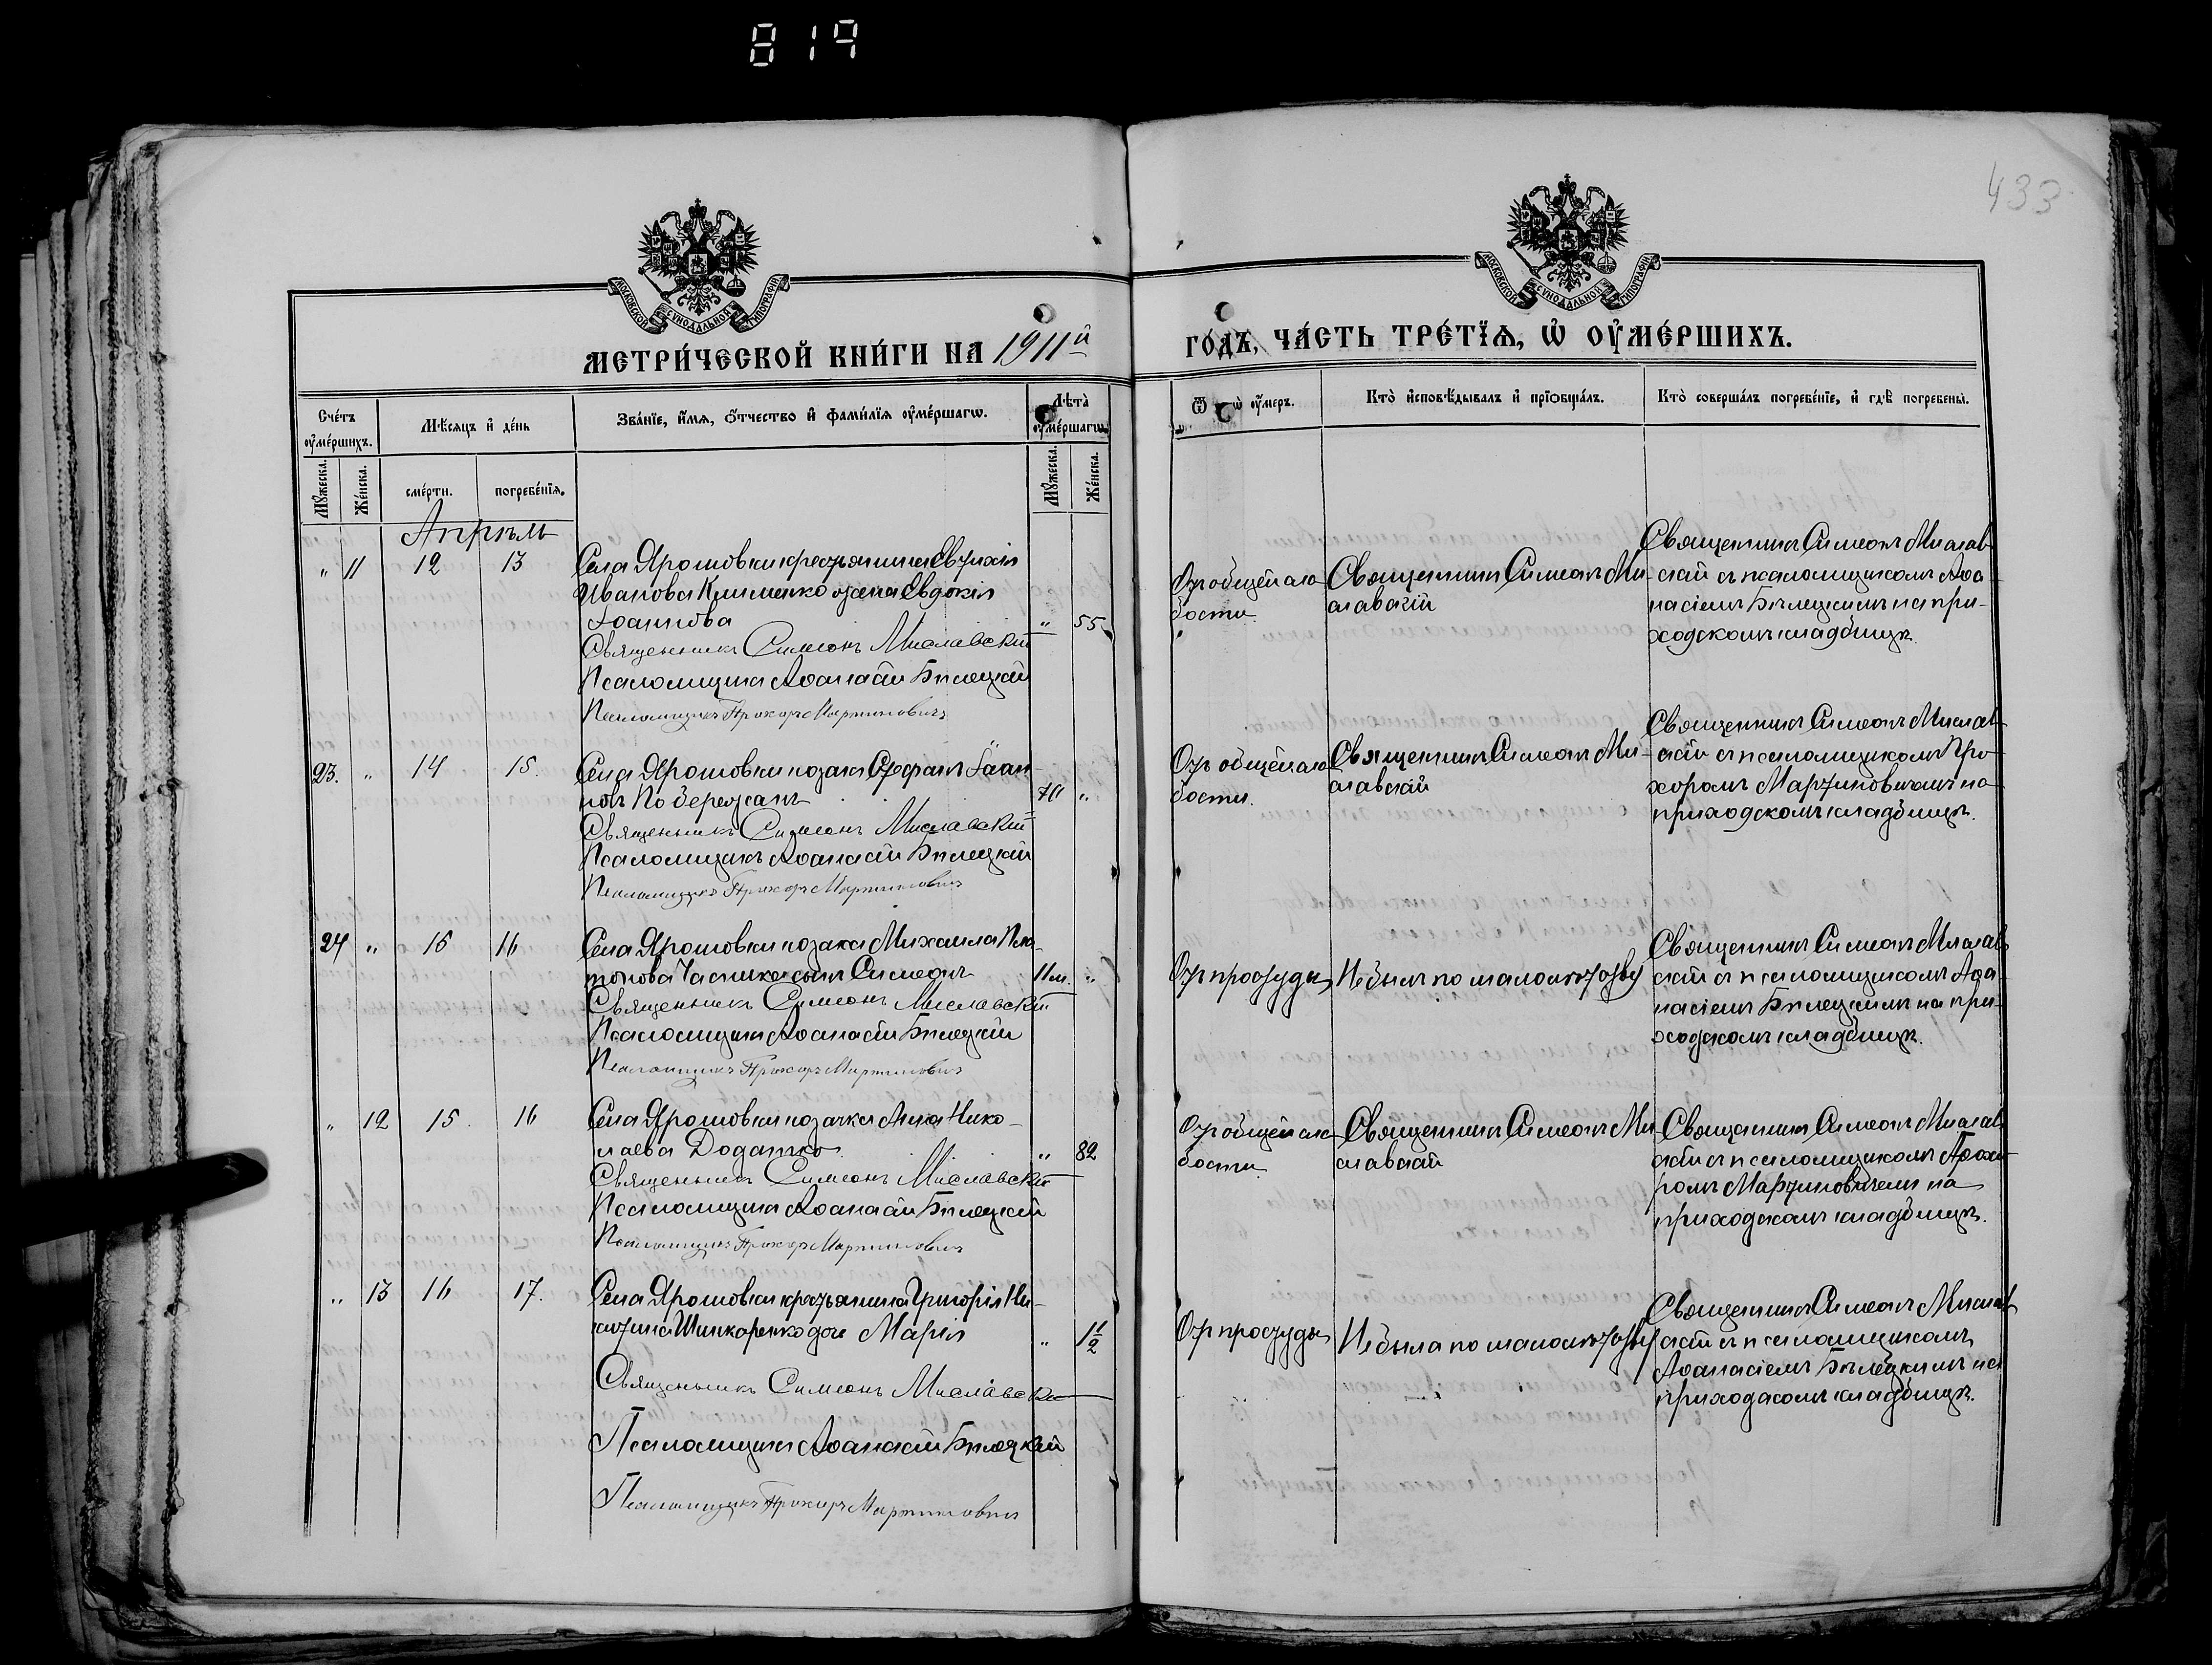 819
433
МОСКОВСКОЙ СѴНОДАЛЬНОЙ ТИПОГРАФІИ
МОСКОВСКОЙ СѴНОДАЛЬНОЙ ТИПОГРАФІИ
МЕТРИ́ЧЕСКОЙ КНИ́ГИ НА 1911й
ГО́ДЪ, ЧА́СТЬ ТРЕ́ТЇѦ, Ѡ҆ ОУ҆МЕ́РШИХЪ.
Сче́тъ оу҆ме́ршихъ.
Мѣ́сяцъ и҆ де́нь
Зва́нїе, и҆́мя, ѻ҆́тчество и҆ фами́лїя оу҆ме́ршагѡ.
Лѣта̀ оу҆ме́ршагѡ.
Мꙋ́жеска.
Же́нска.
сме́рти.
погребе́нїя.
Мꙋ́жеска.
Же́нска.
оу҆́меръ.
Кто̀ и҆сповѣ́дывалъ и҆ прїѡбща́лъ.
Кто̀ соверша́лъ погребе́нїе, и҆ гдѣ̀ погребены̀.
Апрѣль
" 11 12 13
Села Ярошовки крестьянина Евтихія
Иванова Клименко жена Евдокія
Іоаннова " 55
Священникъ Симеонъ Миславскій
Псаломщикъ Аѳанасій Бѣлецкій
Псаломщикъ Прохоръ Мартиновичъ
Отъ общей сла
бости.
Священникъ Симеонъ Ми-
славскій
Священникъ Симеонъ Мислав-
скій съ псаломщикомъ Аѳа-
насіемъ Бѣлецкимъ на при-
ходскомъ кладбищѣ.
23. " 14 15.
Села Ярошовки козакъ Стефанъ Іоан-
новъ Побережанъ 70 "
Священникъ Симеонъ Миславскій
Псаломщикъ Аѳанасій Бѣлецкій
Псаломщикъ Прохоръ Мартиновичъ
Отъ общей сла
бости.
Священникъ Симеонъ Ми-
славскій
Священникъ Симеонъ Мислав-
скій съ псаломщикомъ Про-
хоромъ Мартиновичемъ на
приходскомъ кладбищѣ.
24 " 15 16
Села Ярошовки козака Михаила Пла-
тонова Частика сынъ Симеонъ 11 м. "
Священникъ Симеонъ Миславскій
Псаломщикъ Аѳанасій Бѣлецкій
Псаломщикъ Прохоръ Мартиновичъ
Отъ простуды
Не былъ по малолѣтству
Священникъ Симеонъ Мислав-
скій съ псаломщикомъ Аѳа-
насіемъ Бѣлецкимъ на при-
ходскомъ кладбищѣ.
" 12 15. 16
Села Ярошовки козачка Анна Нико-
лаева Додатко. " 82
Священникъ Симеонъ Миславскій
Псаломщикъ Аѳанасій Бѣлецкій
Псаломщикъ Прохоръ Мартиновичъ
Отъ общей сла-
бости.
Священникъ Симеонъ Ми-
славскій
Священникъ Симеонъ Мислав-
скій съ псаломщикомъ Прохо-
ромъ Мартиновичемъ на
приходскомъ кладбищѣ.
" 13 16 17.
Села Ярошовки крестьянина Григорія Ни-
китина Шинкаренко дочь Марія " 1½
Священникъ Симеонъ Миславскій
Псаломщикъ Аѳанасій Бѣлецкій
Псаломщикъ Прохоръ Мартиновичъ
Отъ простуды
Не была по малолѣтству
Священникъ Симеонъ Мислав-
скій съ псаломщикомъ
Аѳанасіемъ Бѣлецкимъ на
приходскомъ кладбищѣ.